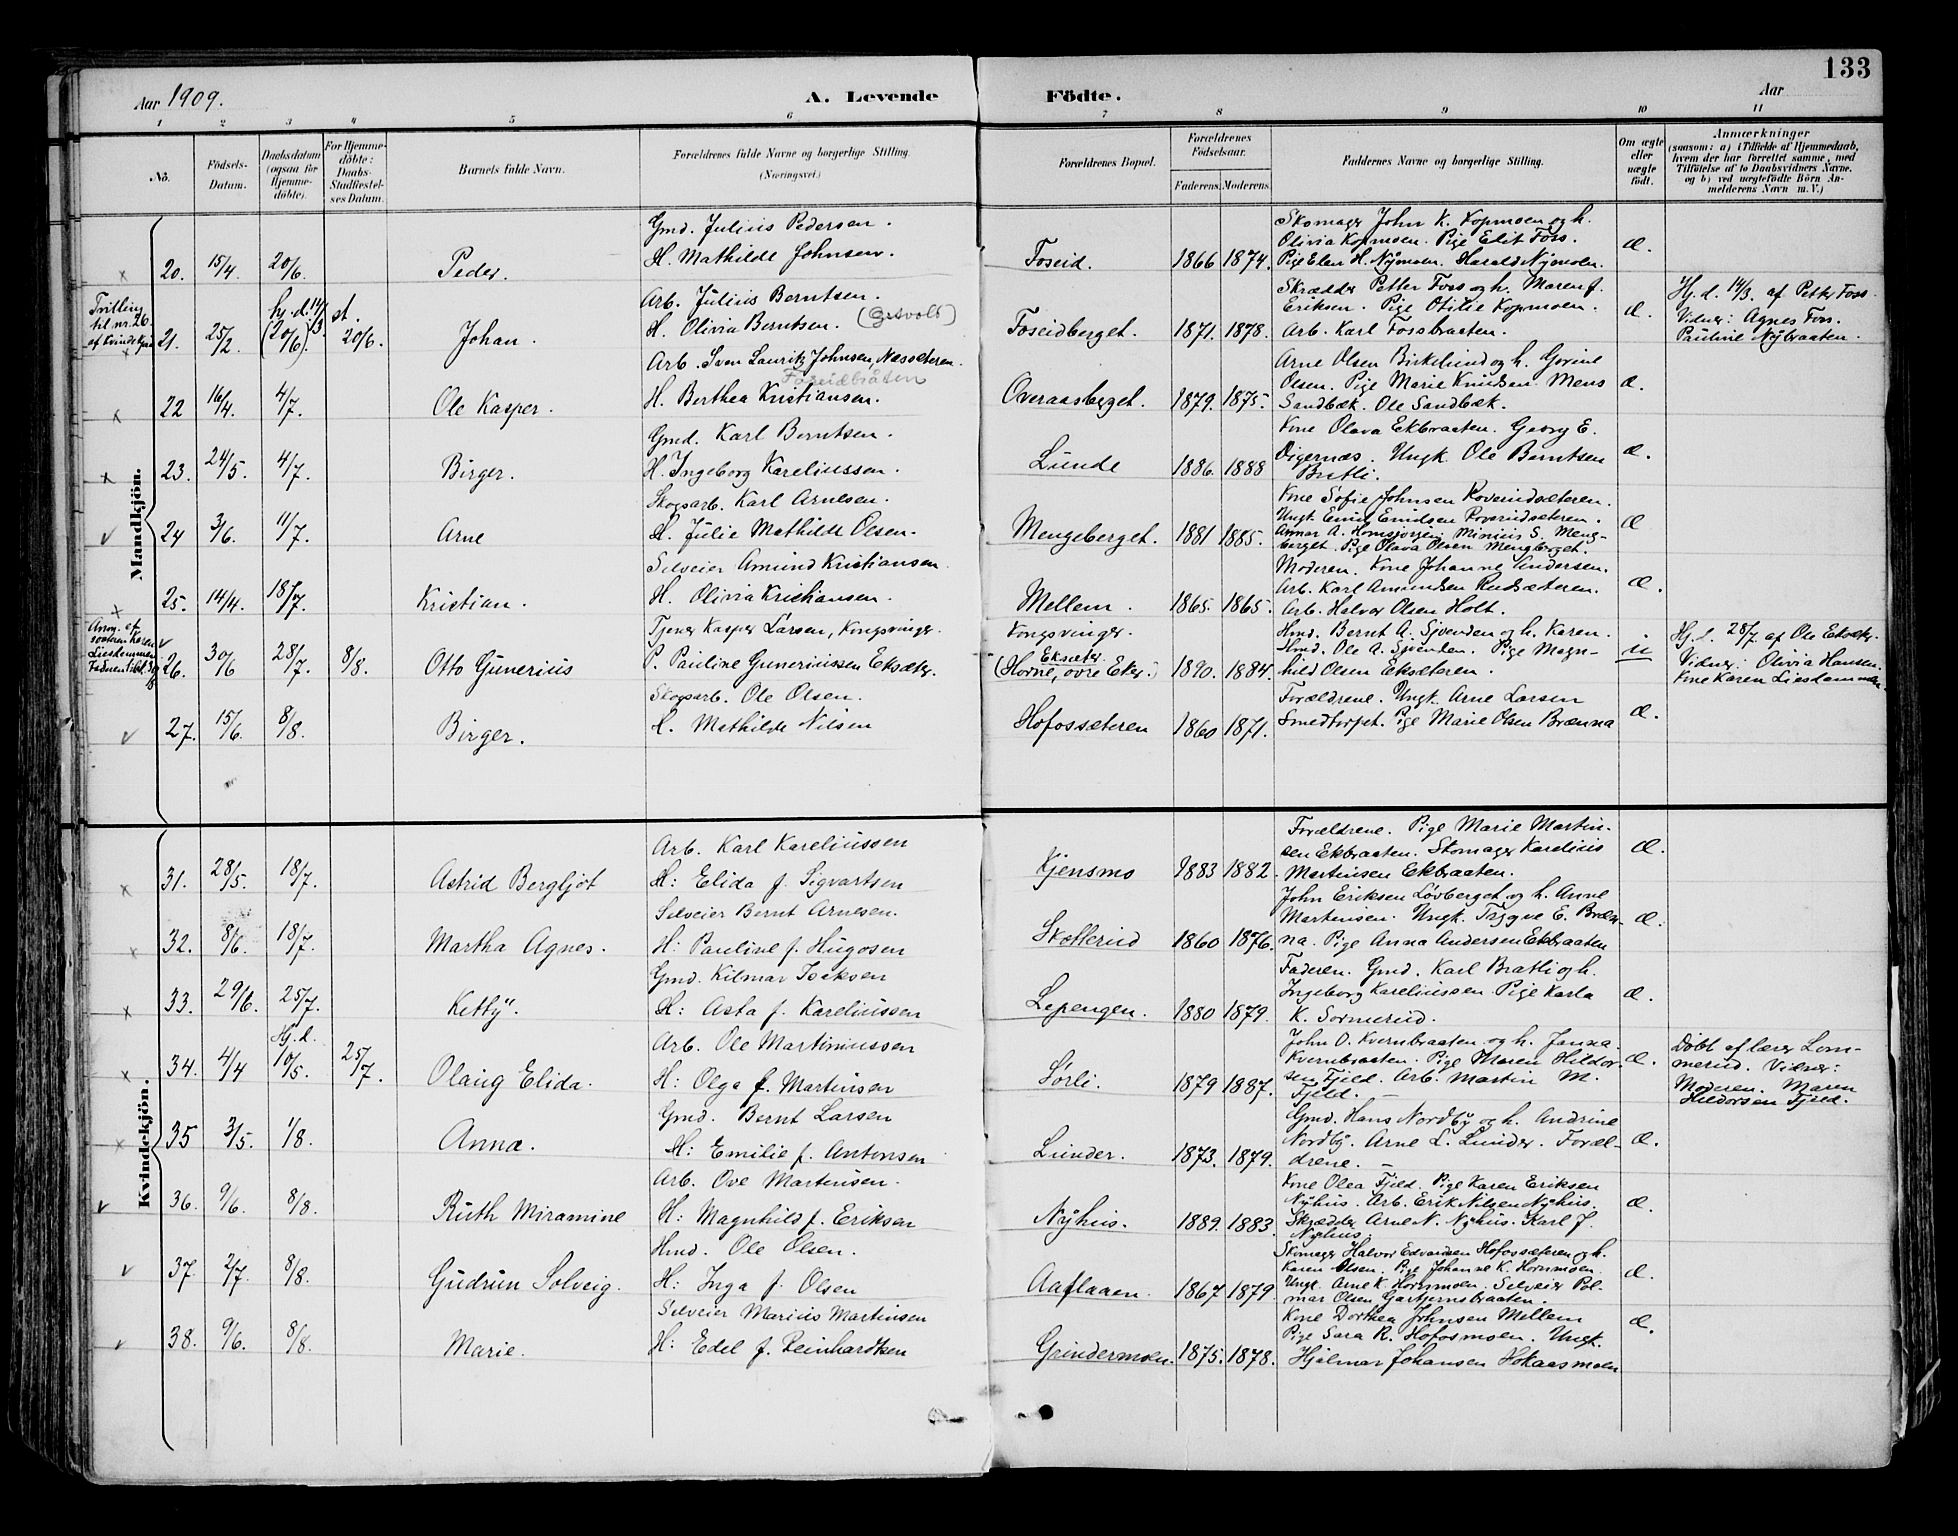 133
Aar 1909.
A. Levende
Födte.
Aar
1 2 3 4 5 6 7 8 9 10 11
No.
Födsels-Datum.
Daabsdatum (ogsaa for Hjemme-döbte).
For Hjemme-döbte: Daabs-Stadfæstel-ses Datum.
Barnets fulde Navn.
Forældrenes fulde Navne og borgerlige Stilling.
(Næringsvei.)
Forældrenes Bopæl.
Forældrenes Födselsaar.
Faderens. Moderens.
Faddernes Navne og borgerlige Stilling.
Om ægte eller uægte födt.
Anmærkninger
(saasom: a) i Tilfælde af Hjemmedaab, hvem der har forrettet samme, med Tilföielse af to Daabsvidners Navne, og b) ved uægtefödte Börn An-melderens Navn m. V.)
Mandkjön.
20. 15/4. 20/6. Peder.
Gmd. Julius Pedersen.
H. Mathilde Johnsen.
Foseid. 1866 1874.
Skomager John K. Kopmoen og h.
Olivia Kopmoen. Pige Elit Foss.
Pige Elen H. Nymoen. Harald Nymoen.
æ.
Tvilling
til nr. 26
af Kvindekjøn
21. 25/2. hj. d. 14/3 (20/6). st. 20/6. Johan.
Arb. Julius Berntsen.
H. Olivia Berntsen. (Gotvolt)
Foseidberget. 1871. 1878.
Skrædder Petter Foss og h. Maren f.
Eriksen. Pige Otilie Kopmoen.
Arb. Karl Fossbraaten.
æ.
Hj. d. 14/3. af Petter Foss
Vidner: Agnes Foss.
Pauline Nybraaten.
22 16/4. 4/7. Ole Kasper.
Arb. Sven Lauritz Johnsen, Næssæteren.
Foseidbråten
H. Berthea Kristiansen.
Overaasberget. 1879. 1875.
Arne Olsen Birkelund og h. Gorine
Olsen. Pige Marie Knudsen. Mens
Sandbæk. Ole Sandbæk.
æ.
23. 24/5. 4/7. Birger.
Gmd. Karl Berntsen.
H. Ingeborg Kareliussen.
Lunde 1886. 1888
Kone Olava Ekbraaten. Georg E.
Digernæs. Ungk. Ole Berntsen
Bratli.
æ.
24 3/6. 11/7. Arne
Skogsarb. Karl Arnesen.
H. Julie Mathilde Olsen.
Mengeberget. 1881 1885.
Kone Sofie Johnsen Roverudsæteren.
Ungk. Emil Emilsen Roverudsæteren.
Annar A. Homsjorjen. Minius S. Meng-
berget. Pige Olava Olsen Mengberget.
æ
25. 14/4. 18/7. Kristian.
Selveier Amund Kristiansen
H. Olivia Kristiansen.
Mellem. 1865. 1865.
Moderen. Kone Johanne Andersen.
Arb. Karl Amundsen Rudsæteren.
Arb. Halvor Olsen Holt.
æ.
26. 30/6 28/7. 8/8. Otto Gunerius
Tjener Kasper Larsen, Kongsvinger.
P. Pauline Gunerius­sen Eksæter.
Kongsvinger.
Eksæter
1890. 1884.
Hmd. Bernt A. Sjvenden og h. Karen.
Hmd. Ole A. Sjvenden. Pige Magn-
hild Olsen Eksæteren.
u
Hj. d. 28/7. af Ole Eksæter.
Vidner: Olivia Hansen.
Kone Karen Liesdammen.
27. 15/6. 8/8. Birger.
Skogsarb. Ole Olsen.
H. Mathilde Nilsen
Hofossæteren 1860 1871.
Forældrene. Ungk. Arne Larsen
Smedtorpet. Pige Marie Olsen Brænna
æ.
Kvindekjön.
31. 28/5. 18/7. Astrid Bergljot
Arb. Karl Kareliussen
H: Elida f. Sigvartsen
Kjensmo 1883 1882.
Forældrene. Pige Marie Martin-
sen Ekbraaten. Skomager Karelius
Martinsen Ekbraaten.
æ.
32. 8/6. 18/7. Martha Agnes.
Selveier Bernt Arnesen.
H: Pauline f. Hugosen
Skætterud 1860 1876.
John Eriksen Løvberget og h. Anne
Martensen. Ungk. Tryggve E. Bræn-
na. Pige Anna Andersen Ekbraaten
æ.
33. 29/6. 25/7. Ketty.
Gmd. Hilmar Isaksen
H: Asta f. Kareliussen
Lepengen. 1880 1879.
Faderen. Gmd. Karl Bratli og h.
Ingeborg Kareliussen. Pige Karla
K. Sormerud.
æ.
34. 4/4 Hj. d. 10/5. 25/7. Olaug Elida.
Arb. Ole Martiniussen
H: Olga f. Martinsen
Sørli. 1879 1887.
John O. Kvernbraaten og h. Janna
Kvernbraaten. Pige Maren Hildor-
sen Fjeld. Arb. Martin M.
Fjeld. —
æ.
Døbt af lærer Lom-
merud. Vidner:
Moderen. Maren
Hildorsen Fjeld.
35 3/5. 1/8. Anna.
Gmd. Bernt Larsen
H: Emilie f. Antonsen
Lunder. 1873. 1879.
Gmd. Hans Nordby og h. Andrine
Nordby. Arne L. Lunder. Foræl-
drene. —
æ.
36. 9/6. 8/8. Ruth Miramine
Arb. Ove Martinsen.
H: Magnhild f. Eriksen
Nyhus. 1889. 1883
Kone Olea Fjeld. Pige Karen Eriksen
Nyhus. Arb. Erik Nilsen Nyhus.
Skrædder Arne N. Nyhus. Karl J.
Nyhus.
æ.
37 2/7. 8/8. Gudrun Solveig.
Hmd. Ole Olsen.
H: Inga f. Olsen
Aaflaaen. 1867 1879
Skomager Halvor Edvardsen Hofossæteren og h.
Karen Olsen. Pige Johanne K. Hornmoen.
Ungk. Arne K. Hornmoen. Selveier Pol-
mar Olsen Gartjernsbraaten.
æ.
38. 9/6. 8/8. Marie.
Selveier Marius Martinsen
H: Edel f. Reinhardtsen
Grindermoen. 1875. 1878.
Kone Dorthea Johnsen Mellem
Pige Sara R. Hofosmoen. Ungk.
Hjalmar Johansen Hokaasmoen
æ.